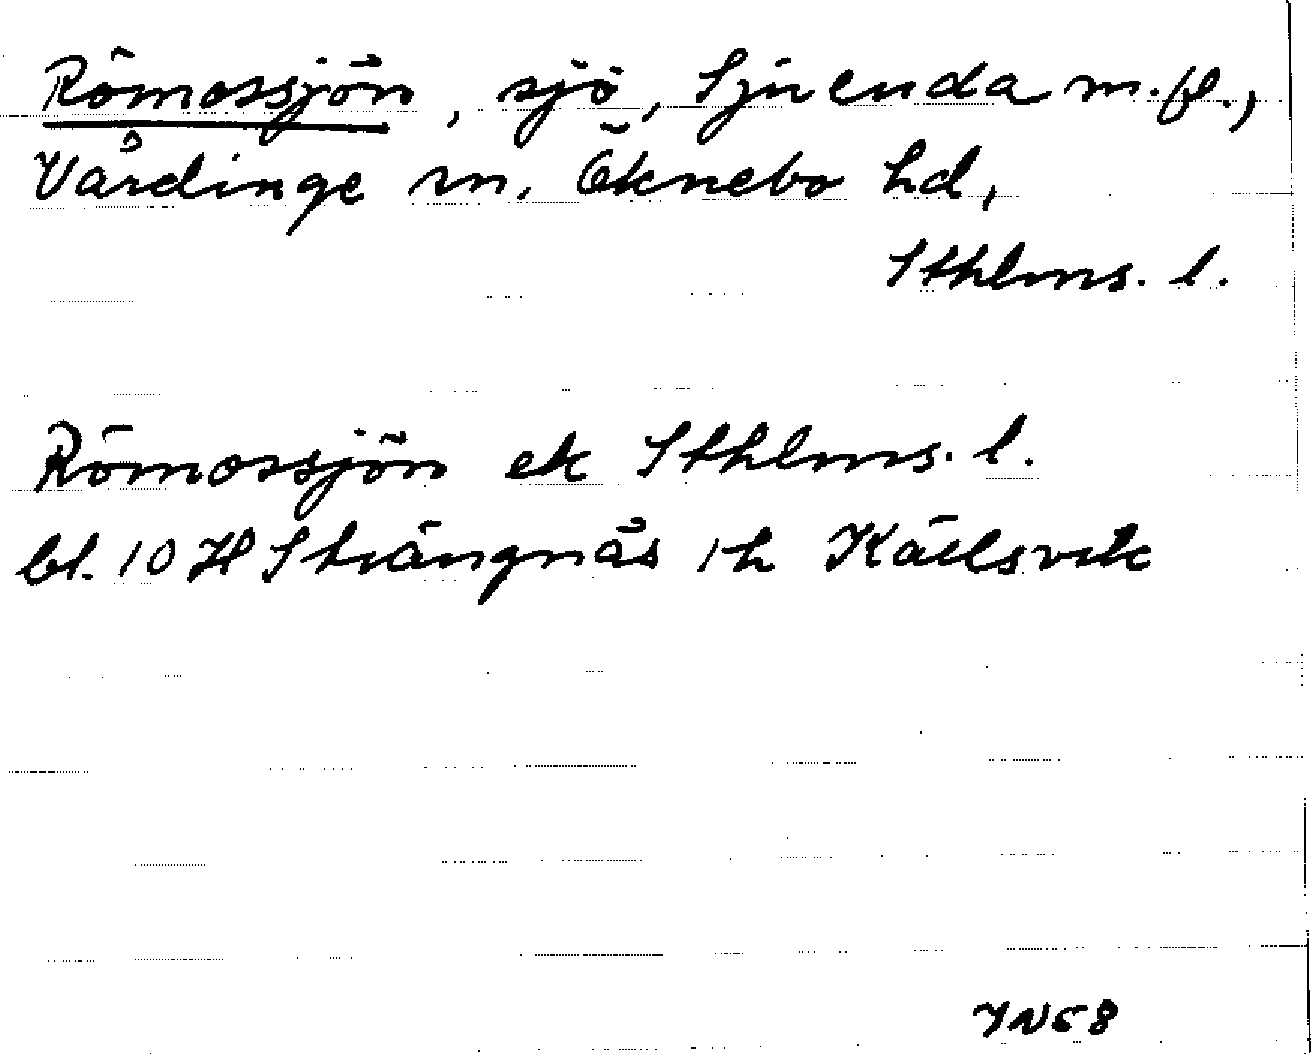 Römossjön, sjö, Sjuenda m.fl.,
Vårdinge sn, Öknebo hd,
Sthlms. l.
Römossjön ek Sthlms. l.
bl. 10 H Strängnäs 1h Källsvik